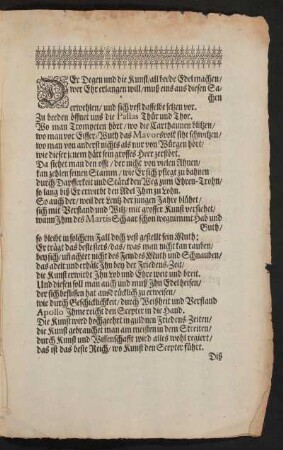 DEr Degen und die Kunst/all beede Edel machen/
wer Ehr erlangen will/ muß eins aus diesen Sa-
chen
erwehlen/ und sich vest dasselbe setzen vor.
Zu beeden öffnet uns die Pallas Thür und Thor.
Wo man Trompeten hört/ wo die Carthaunen blitzen/
wo man vor Eiffer-Wuth das Mavorsvolk siht schwitzen/
wo man von anderst nichts als nur von Würgen hört/
wie dieser jenem hart sein grosses Heer zerstört.
Da siehet man den offt/ der nicht von vielen Ahnen/
kan zehlen seinen Stamm/ wie Er sich pflegt zu bahnen
durch Dapfferkeit und Stärck den Weg zum Ehren-Thron/
so lang biß Er erwerbt den Adel Ihm zu Lohn.
So auch der/ weil der Lentz der jungen Jahre blühet/
sich mit Verstand und Witz/ mit grosser Kunst versiehet/
wann Ihm des Martis Schaar schon wegnimmt Hab und
Guth/
so bleibt in solchem Fall doch vest gestellt sein Muth;
Er trägt das bestesters/ das/ was man nicht kan rauben/
bey sich/ ufi achtet nicht des Feinds Wuth und Schnauben/
das adelt und erhält Ihn bey der Friedens-Zeit/
die Kunst erwirbt Ihm Lob und Ehre weit und breit.
Und diesen soll man auch und muß Ihn Edel heisen/
der sich beflissen hat aus drücklich zu erweisen/
wie durch Geschicklichkeit/ durch Weißheit und Verstand
Apollo Ihme reicht den Scepter in die Hand.
Die Kunst wird hochgeehrt in guldnen Friedens Zeiten/
die Kunst gebrauchet man am meisten in dem Streiten/
durch Kunst und Wissenschafft wird alles wohl regiert/
das ist das beste Reich/ wo Kunst den Scepter führt.
Diß